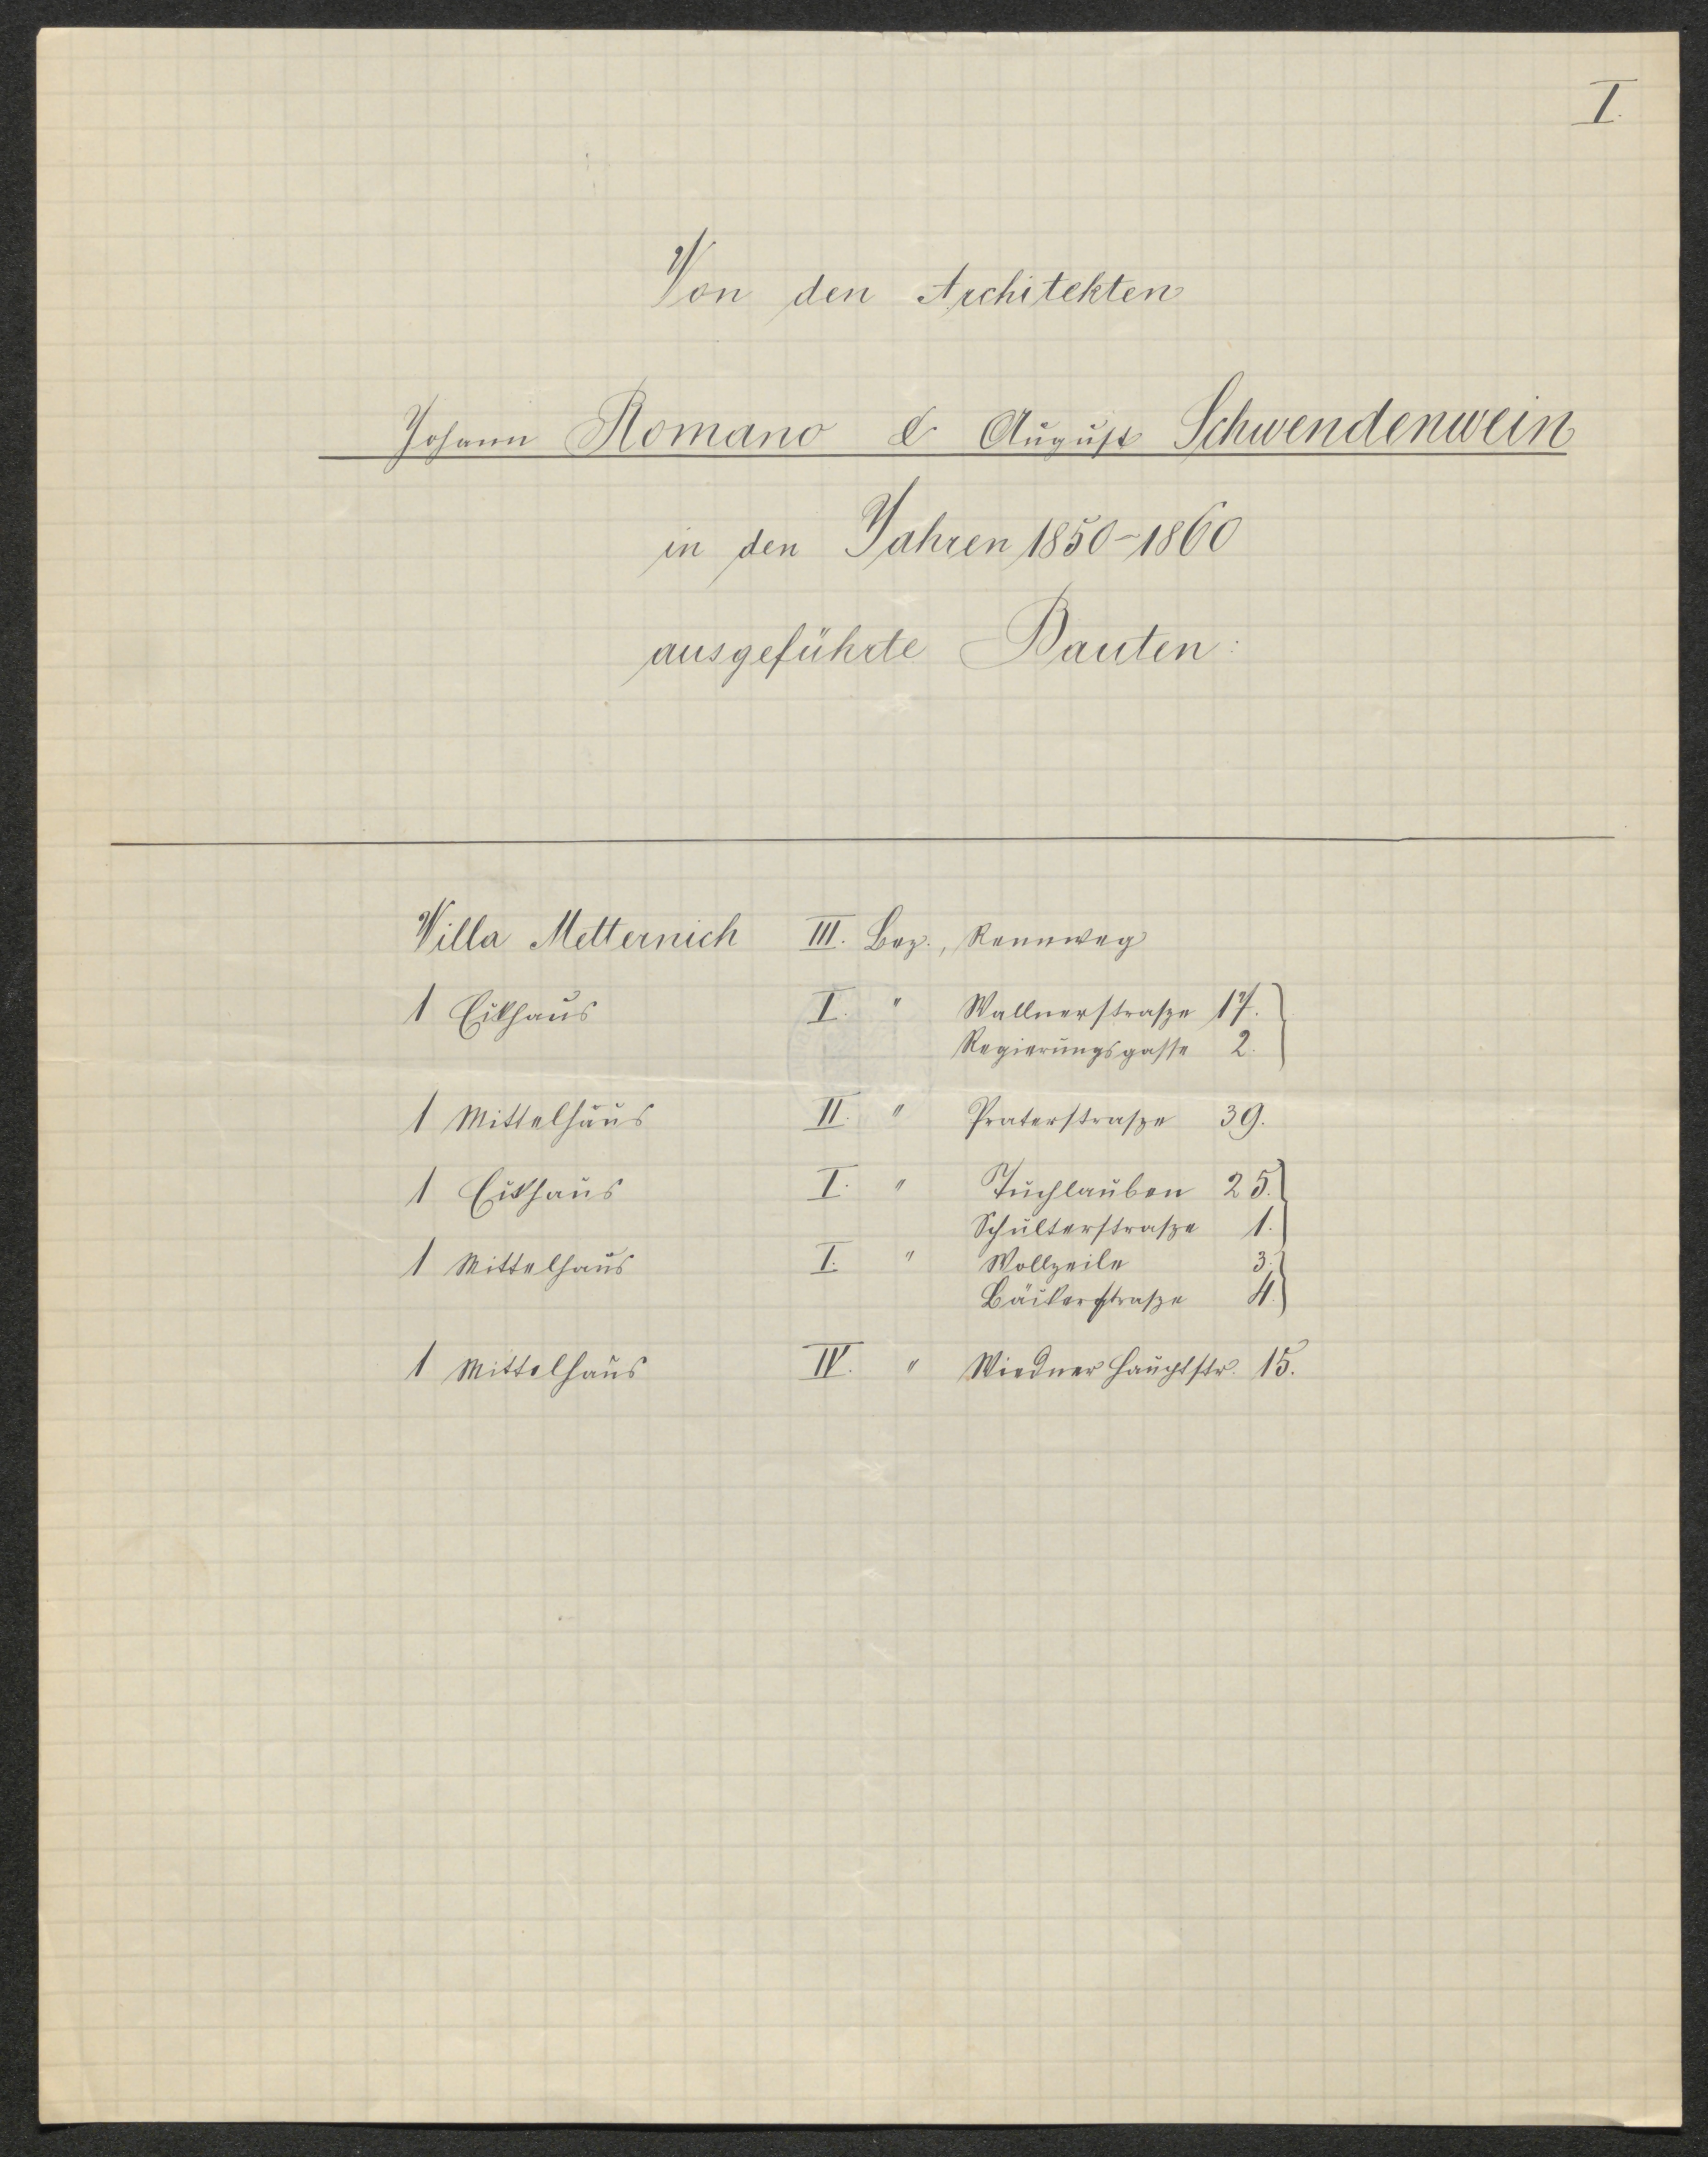 I.
Von den Architekten
Johann Romano & August Schwendenwein
in den Jahren 1850-1860
ausgeführte Bauten:
Villa Metternich III. Bez., Rennweg
1 Eckhaus I. " Wallnerstraße 17.
Regierungsgasse 2.
1 Mittelhaus II. " Praterstraße 39.
1 Eckhaus I. " Tuchlauben 25.
Schulterstraße 1.
1 Mittelhaus I. " Wollzeile 3.
Bäckerstraße 4.
1 Mittelhaus IV. " Wiedner Hauptstr. 15.